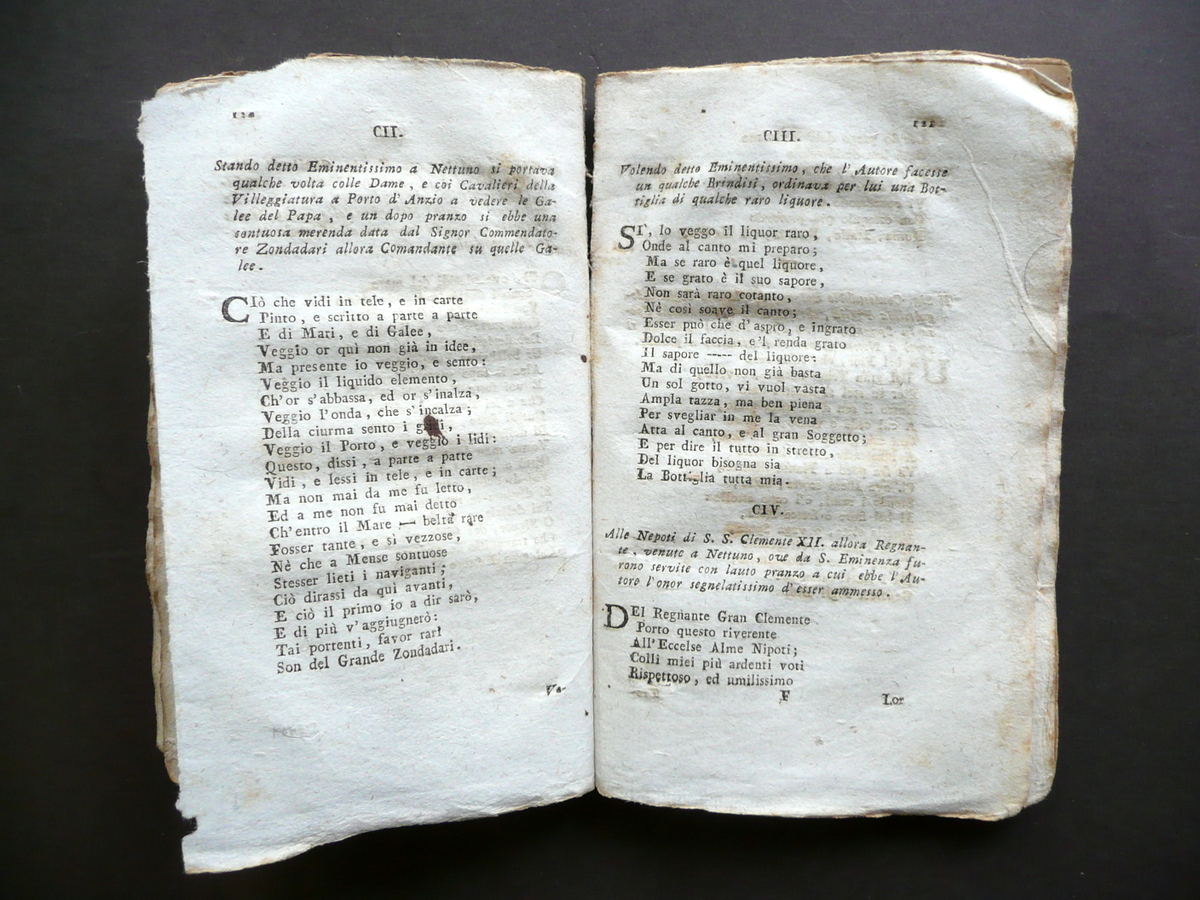 CII.
Stando detto Eminentissimo a Nettuno si portava
qualche volta colle Dame, e coi Cavalieri della
Villeggiatura a Porto d'Anzio a vedere le Ga-
lee del Papa, e un dopo pranzo si ebbe una
sontuosa merenda data dal Signor Commendato-
re Zondadari allora Comandante su quelle Ga-
lee.
CIò che vidi in tele, e in carte
Pinto, e scritto a parte a parte
E di Mari, e di Galee,
Veggio or qui non già in idee,
Ma presente io veggio, e sento:
Veggio il liquido elemento,
Ch'or s'abbassa, ed or s'inalza,
Veggio l'onda, che s'incalza;
Della ciurma sento i
Veggio il Porto, e veggio i lidi:
Questo, dissi, a parte a parte
Vidi, e lessi in tele, e in carte;
Ma non mai da me fu letto,
Ed a me non fu mai detto
Ch'entro il Mare — beltà rare
Fosser tante, e sì vezzose,
Nè che a Mense sontuose
Stesser lieti i naviganti;
Ciò dirassi da quì avanti,
E ciò il primo io a dir sarò,
E di più v'aggiugnerò:
Tai portenti, favor rari
Son del Grande Zondadari.
Vo-
121
CIII.
Volendo detto Eminentissimo, che l'Autore facesse
un qualche Brindisi, ordinava per lui una Bot-
tiglia di qualche raro liquore.
SI', lo veggo il liquor raro,
Onde al canto mi preparo;
Ma se raro è quel liquore,
E se grato è il suo sapore,
Non sarà raro cotanto,
Nè così soave il canto;
Esser può che d'aspro, e ingrato
Dolce il faccia, e'l renda grato
Il sapore ----- del liquore:
Ma di quello non già basta
Un sol gotto, vi vuol vasta
Ampla tazza, ma ben piena
Per svegliar in me la vena
Atta al canto, e al gran Soggetto;
E per dire il tutto in stretto,
Del liquor bisogna sia
La Bottiglia tutta mia.
CIV.
Alle Nepoti di S. S. Clemente XII. allora Regnan-
te, venute a Nettuno, ove da S. Eminenza fu-
rono servite con lauto pranzo a cui ebbe l'Au-
tore l'onor segnelatissimo d'esser ammesso.
DEl Regnante Gran Clemente
Porto questo riverente
All'Eccelse Alme Nipoti;
Colli miei più ardenti voti
Rispettoso, ed umilissimo
F
Lor